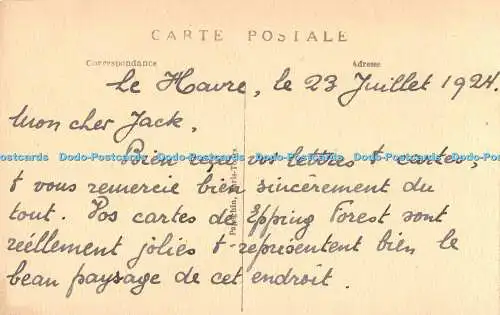 CARTE POSTALE
Correspondance Adresse
Le Havre, le 23 Juillet 1924.
Mon cher Jack,
Bien reçu vos lettres + cartes,
Dodo-Postcards Dodo-Postcards Dodo-Postcards Dodo-Postcards Dodo-Postcards
+ vous remercie bien sincèrement du
tout. Vos cartes de Epping Forest sont
réellement jolies + représentent bien le
beau paysage de cet endroit.